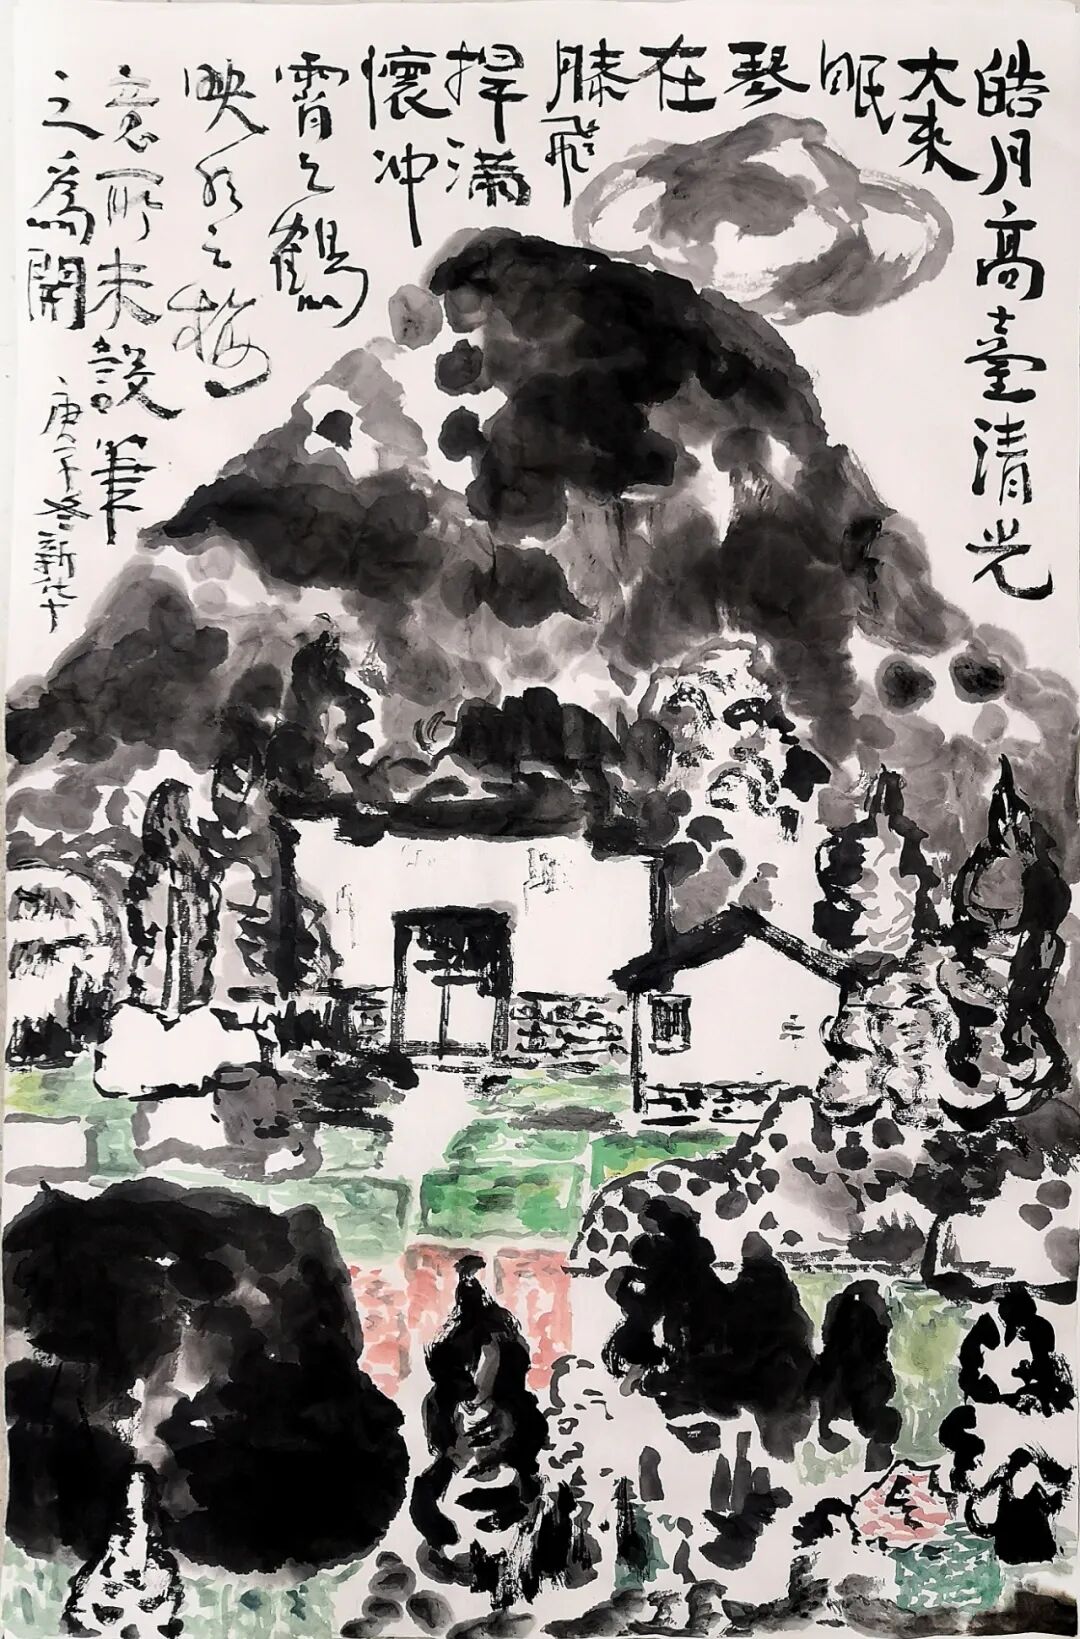 皓月高臺清光
大來
眠
琴
在
膝飛
捍滿
懷冲
霄之鶴
映水之梅
意所未設筆
之為開
庚子冬新華